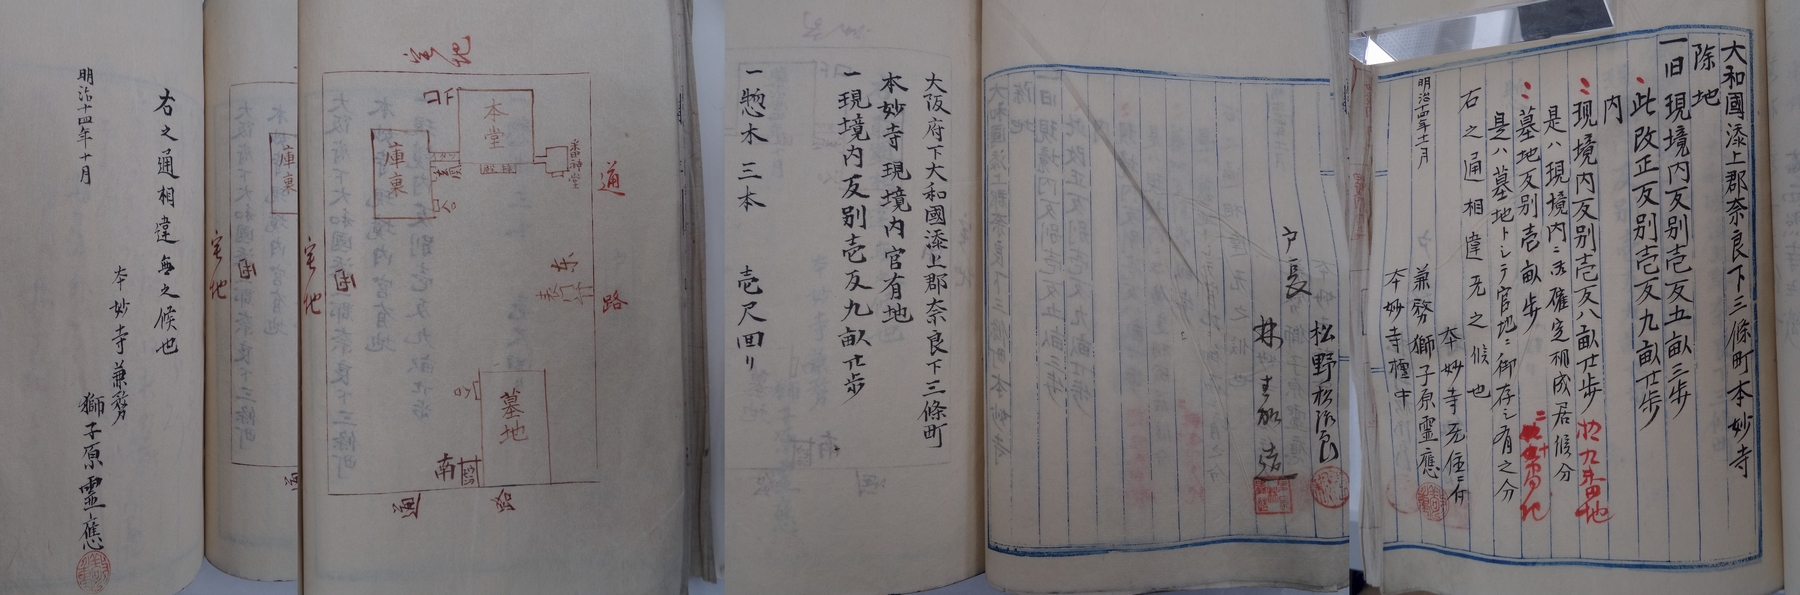 大和國添上郡奈良下三條町本妙寺
除地
一旧現境内反別壱反五畝三歩
此改正反別壱反九畝廿歩
内
現境内反別壱反八畝廿歩
是ハ現境内ニ御確定相成居候分
墓地反別壱畝歩
是ハ墓地トシテ官地ニ御存シ有之分
右之通相違无之候也
本妙寺无住ニ付
明治十四年十二月
兼務獅子原霊應
本妙寺檀中
松野松次郎
戸長
大阪府下大和國添上郡奈良下三條町
本妙寺現境内官有地
一現境内反別壱反九畝廿歩
一惣木三本 壱尺回リ
宅地
通路
東
表門
番神堂
本堂
庫裏
墓地
南
通
路
宅地
右之通相違無之候也
本妙寺兼務
獅子原霊應
明治十四年十月